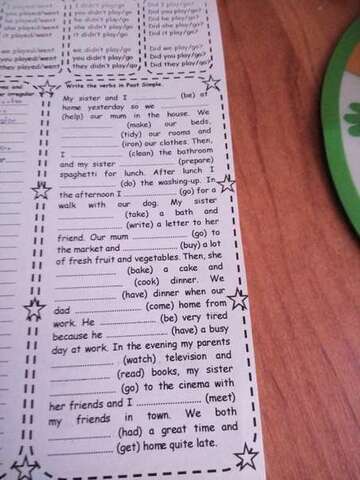 I didn't play/go
you didn't play/go
he didn't play/go
she didn't play/go
it didn't play/go
we didn't play/go
you didn't play/go
they didn't play/go
Did you play/go?
Did he play/go?
Did she play/go?
Did it play/go?
Did we play/go?
Did you play/go?
Did they play/go?
it played/went
we played/went
you played/went
they played/went
irregular
Write the verbs in Past Simple.
My sister and I ________ (be) at
home yesterday so we ________
(help) our mum in the house. We
________ (make) our beds,
________ (tidy) our rooms and
________ (iron) our clothes. Then,
I ________ (clean) the bathroom
and my sister ________ (prepare)
spaghetti for lunch. After lunch I
________ (do) the washing-up. In
the afternoon I ________ (go) for a
walk with our dog. My sister
________ (take) a bath and
________ (write) a letter to her
friend. Our mum ________ (go) to
the market and ________ (buy) a lot
of fresh fruit and vegetables. Then, she
________ (bake) a cake and
________ (cook) dinner. We
________ (have) dinner when our
dad ________ (come) home from
work. He ________ (be) very tired
because he ________ (have) a busy
day at work. In the evening my parents
________ (watch) television and
________ (read) books, my sister
________ (go) to the cinema with
her friends and I ________ (meet)
my friends in town. We both
________ (had) a great time and
________ (get) home quite late.